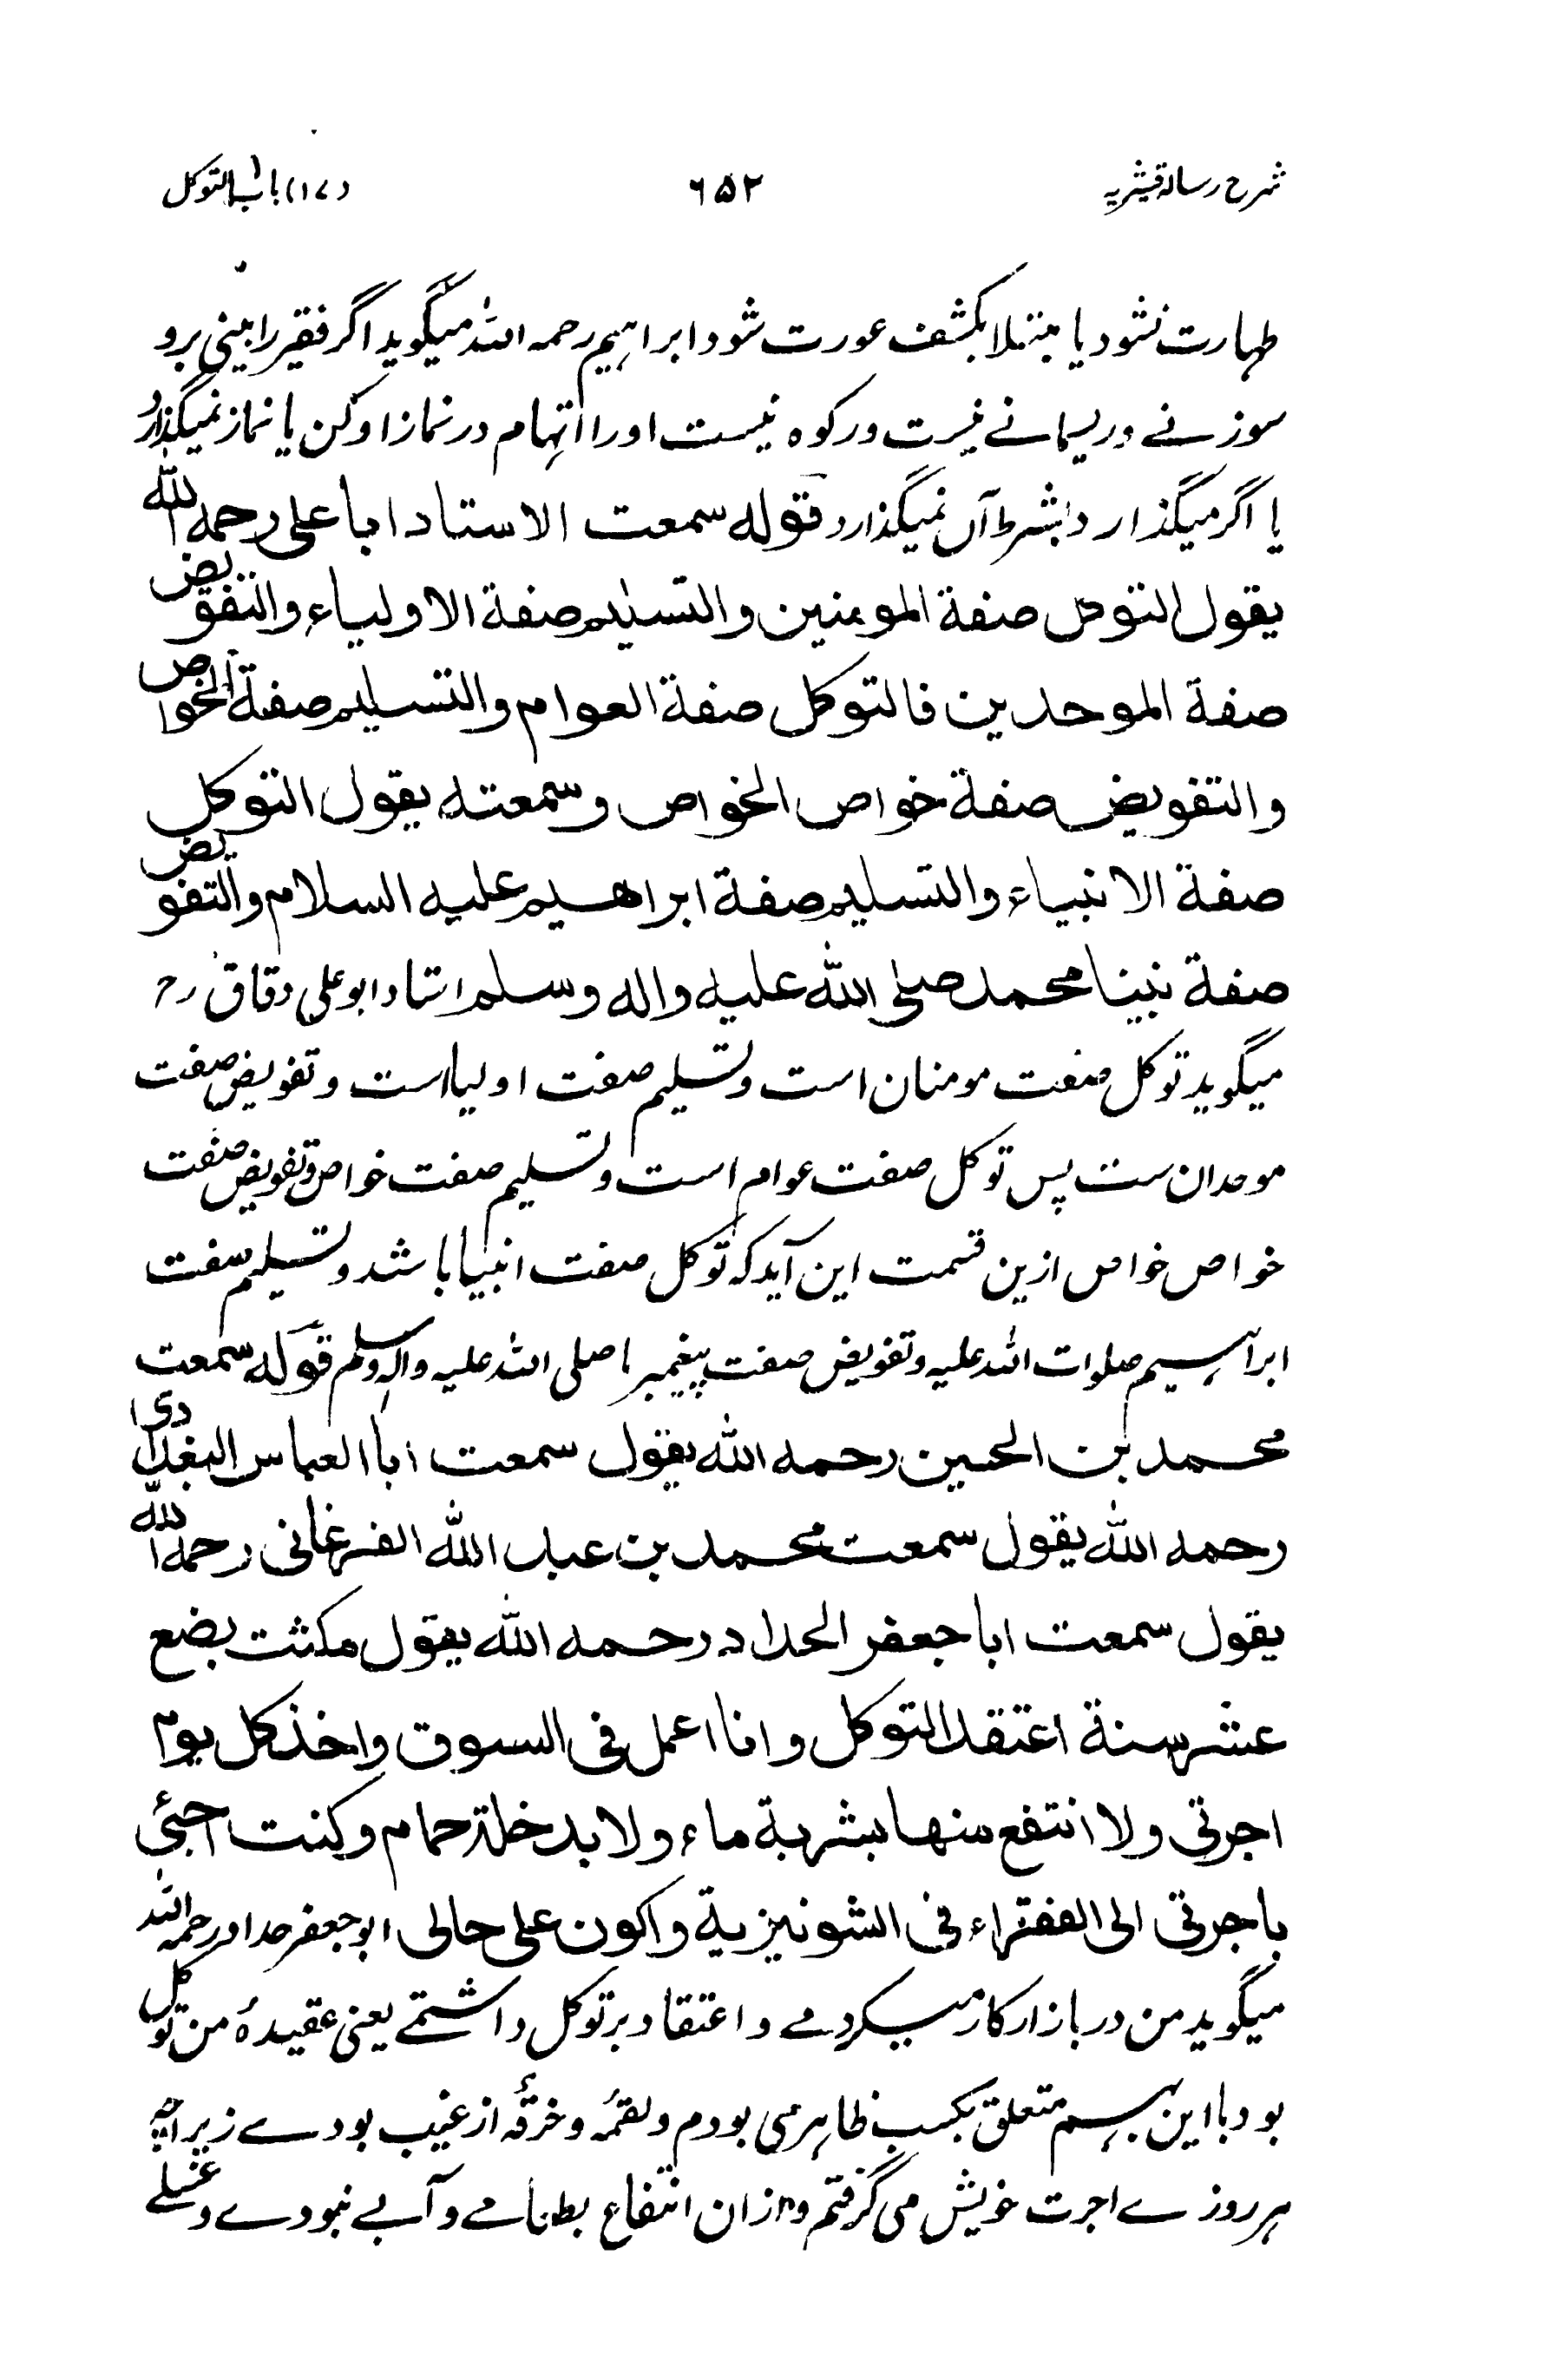 شرح رسالہ قشیریہ ۶۵۲ (۱۷) باب التوکل
طہارت نشود یا مبتلا بکشف عورت شود ابراہیم رحمہ اللہ میگوید اگر فقیر را بینی برو
سوزنے و ریسمانے نیست و رکوہ نیست او را اتہام در نماز او کن یا نماز نمیگذارد
یا اگر میگذارد بشرط آں نمیگذارد قولہ سمعت الاستاد ابا علی رحمہ اللہ
یقول التوکل صفة المومنین والتسلیم صفة الاولیاء والتفویض
صفة الموحدین فالتوکل صفة العوام والتسلیم صفة الخواص
والتفویض صفة خواص الخواص وسمعتہ یقول التوکل
صفة الانبیاء والتسلیم صفة ابراھیم علیہ السلام والتفویض
صفة نبینا محمد صلی اللہ علیہ والہ وسلم استاد ابو علی دقاق رح
میگوید توکل صفت مومنان است و تسلیم صفت اولیا است و تفویض صفت
موحدان ست پس توکل صفت عوام است و تسلیم صفت خواص و تفویض صفت
خواص خواص ازین قسمت این آید کہ توکل صفت انبیا باشد و تسلیم صفت
ابراہیم صلوات اللہ علیہ و تفویض صفت پیغمبر ما صلی اللہ علیہ والہ وسلم قولہ سمعت
محمد بن الحسین رحمہ اللہ یقول سمعت ابا العباس البغدادی
رحمہ اللہ یقول سمعت محمد بن عبد اللہ الفرغانی رحمہ اللہ
یقول سمعت ابا جعفر الحداد رحمہ اللہ یقول مکثت بضع
عشر سنة اعتقد التوکل وانا اعمل فی السوق واخذ کل یوم
اجرتی ولا انتفع منھا بشربة ماء ولا بدخلة حمام وکنت اجیٔ
باجرتی الی الفقراء فی الشونیزیة واکون علی حالی ابو جعفر حداد رحمہ اللہ
میگوید من در بازار کار میکردمے و اعتقاد بر توکل داشتمے یعنی عقیدۂ من توکل
بود با این ہم متعلق بکسب ظاہر می بودم و لقمۂ و خرقۂ از غیب بودے زیراچہ
ہر روزے اجرت خویش می گرفتم و ازان انتفاع بطنامے و آبے نبودے و غسلے